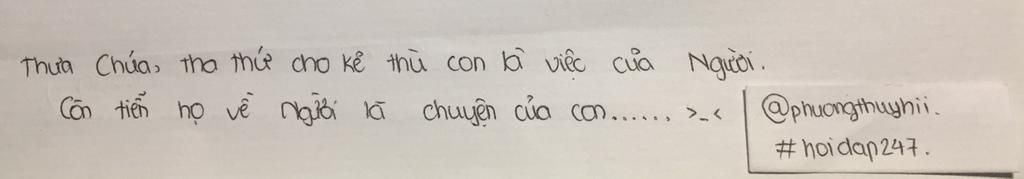 Thưa Chúa, tha thứ cho kẻ thù con là việc của Người.
Còn tiễn họ về Người là chuyện của con...... >_<
@phuongthuyhii.
#hoidap247.